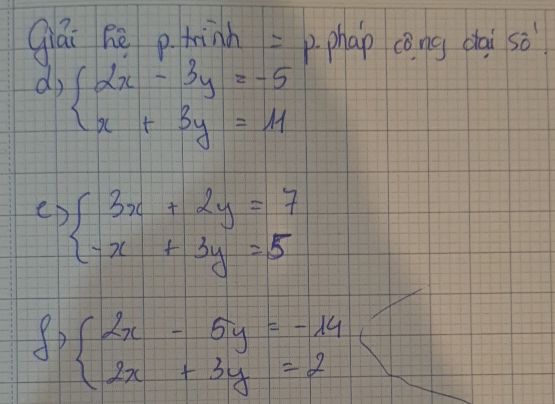 Giải hệ p.trình = p.pháp cộng đại số.
d) { 2x - 3y = -5
x + 3y = 11
e) { 3x + 2y = 7
-x + 3y = 5
f) { 2x - 5y = -14
2x + 3y = 2